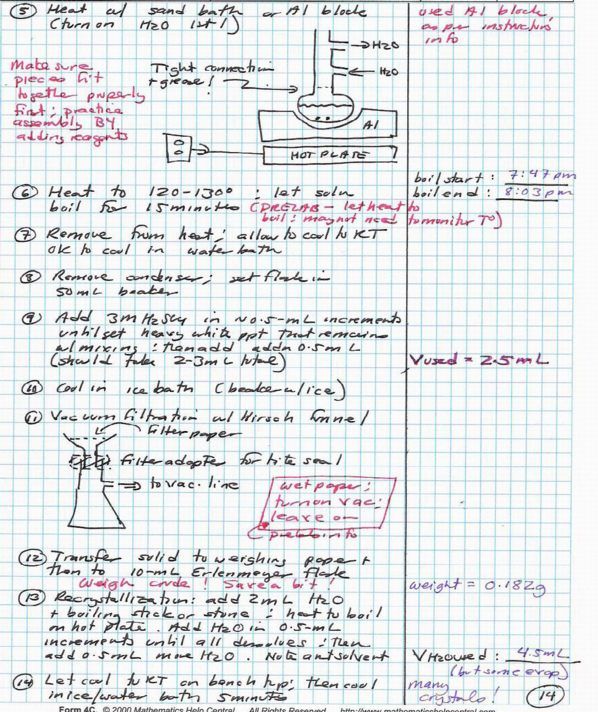 ⑤ Heat w/ sand bath or Al block
(turn on H2O 1st!)
used Al block,
as per instructors
info
Make sure
pieces fit
together properly
first; practice
assembly B4
adding reagents
Tight connection
+ grease!
→H2O
←H2O
Al
HOT PLATE
boil start: 7:47 pm
boil end: 8:03 pm
⑥ Heat to 120-130°; let soln
boil for 15 minutes (PRELAB - let heat to
boil; may not need to monitor T°)
⑦ Remove from heat; allow to cool to RT
OK to cool in water bath
⑧ Remove condenser; set flask in
50 mL beaker
⑨ Add 3M H2SO4 in ~0.5-mL increments
until get heavy white ppt that remains
w/ mixing; then add addn 0.5 mL
(should take 2-3 mL total)
Vused = 2.5 mL
⑩ Cool in ice bath (beaker w/ice)
⑪ Vacuum filtration w/ Hirsch funnel
filter paper
filter adapter for tite seal
→ to vac. line
wet paper;
turn on vac;
leave on
prelab info
⑫ Transfer solid to weighing paper +
then to 10-mL Erlenmeyer flask
Weigh crude! Save a bit!
weight = 0.182g
⑬ Recrystallization: add 2 mL H2O
+ boiling stick or stone; heat to boil
on hot plate. Add H2O in 0.5-mL
increments until all dissolves; then
add 0.5 mL more H2O. Note amt solvent
VH2O used: 4.5 mL
(but some evap)
⑭ Let cool to RT on bench top; then cool
in ice/water bath 5 minutes
many
crystals!
14
Form 4C © 2000 Mathematics Help Central All Rights Reserved http://www.mathematicshelpcentral.com